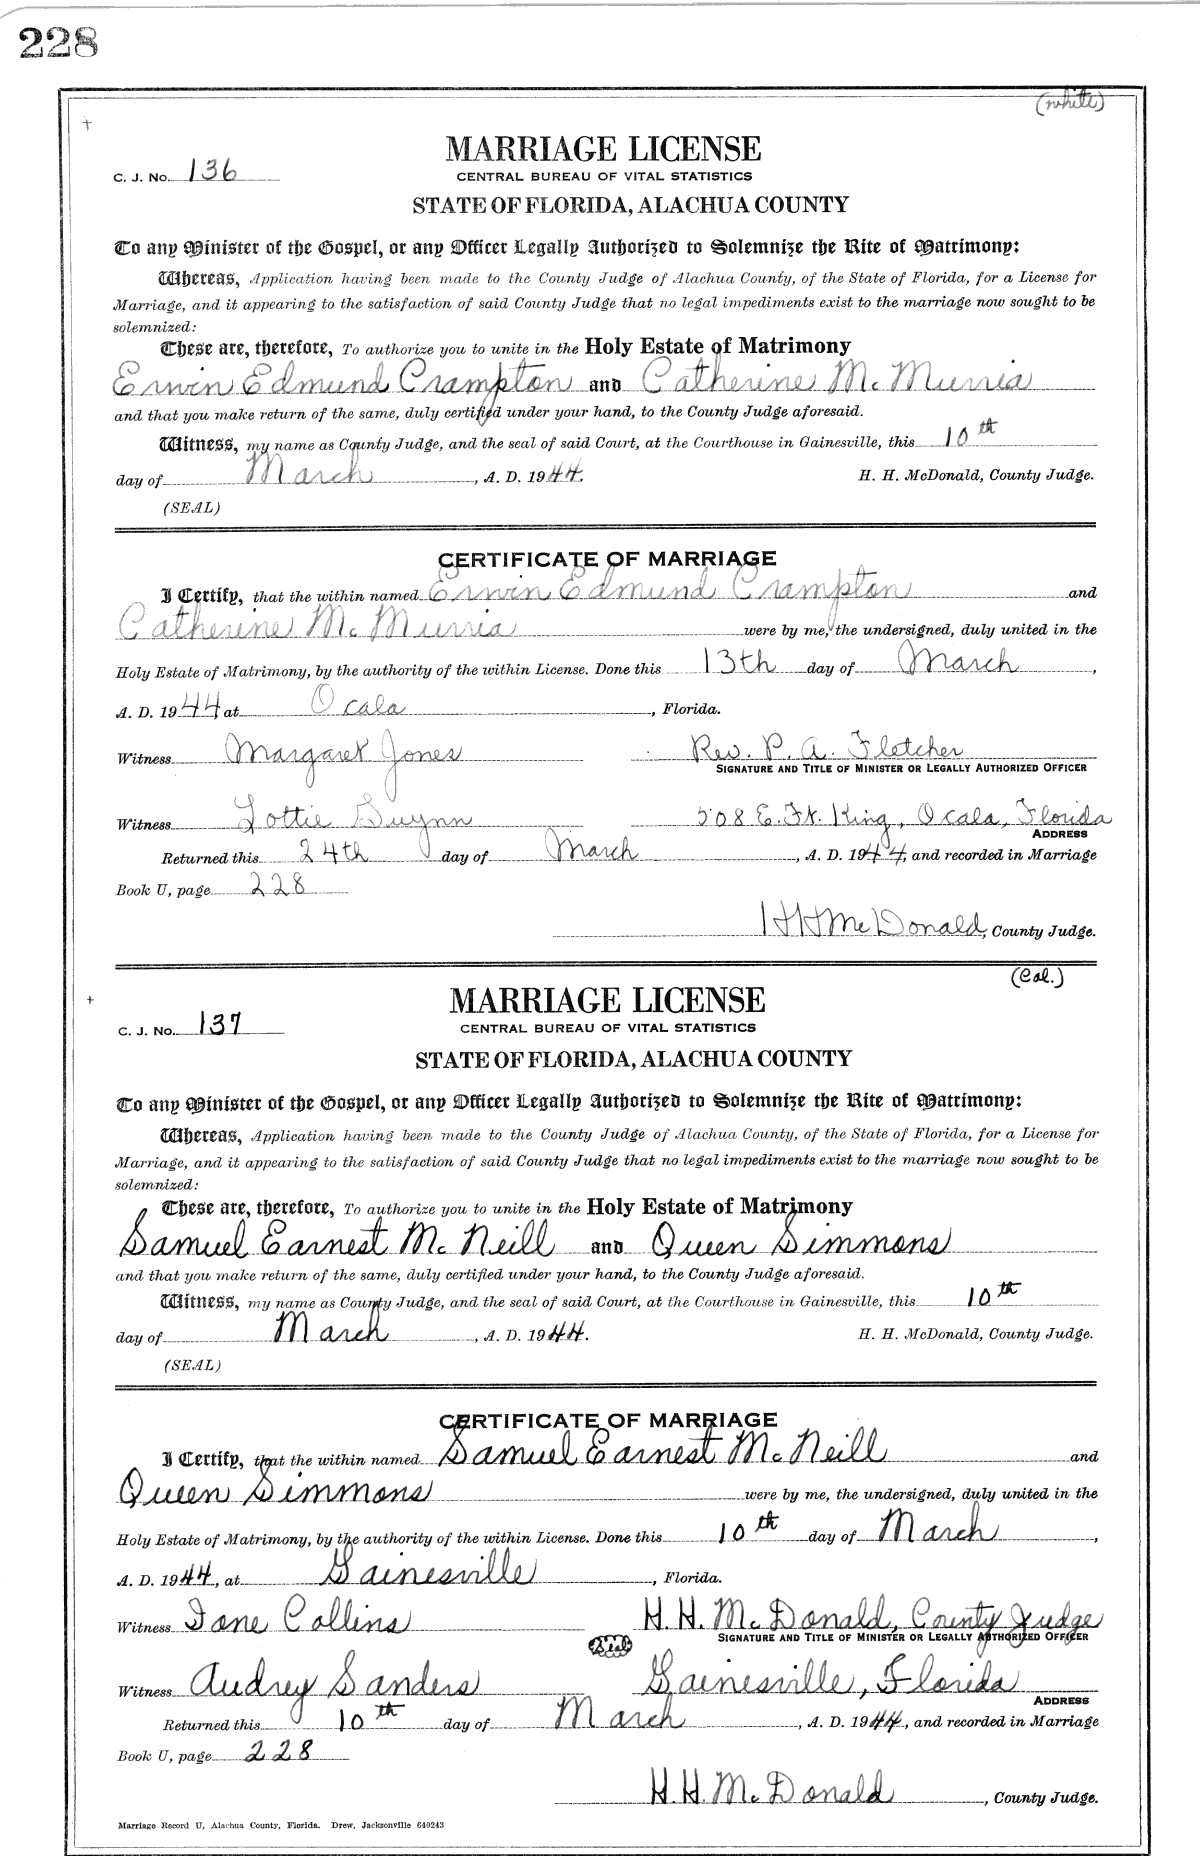 228
(white)
+
MARRIAGE LICENSE
C. J. No. 136
CENTRAL BUREAU OF VITAL STATISTICS
STATE OF FLORIDA, ALACHUA COUNTY
To any Minister of the Gospel, or any Officer Legally Authorized to Solemnize the Rite of Matrimony:
Whereas, Application having been made to the County Judge of Alachua County, of the State of Florida, for a License for
Marriage, and it appearing to the satisfaction of said County Judge that no legal impediments exist to the marriage now sought to be
solemnized:
These are, therefore, To authorize you to unite in the Holy Estate of Matrimony
Erwin Edmund Crampton and Catherine McMurria
and that you make return of the same, duly certified under your hand, to the County Judge aforesaid.
Witness, my name as County Judge, and the seal of said Court, at the Courthouse in Gainesville, this 10th
day of March, A. D. 1944. H. H. McDonald, County Judge.
(SEAL)
CERTIFICATE OF MARRIAGE
I Certify, that the within named Erwin Edmund Crampton and
Catherine McMurria were by me, the undersigned, duly united in the
Holy Estate of Matrimony, by the authority of the within License. Done this 13th day of March,
A. D. 1944, at Ocala, Florida.
Witness Margaret Jones Rev. P. A. Fletcher
SIGNATURE AND TITLE OF MINISTER OR LEGALLY AUTHORIZED OFFICER
Witness Lottie Gwynn 508 E. Ft. King, Ocala, Florida
ADDRESS
Returned this 24th day of March, A. D. 1944, and recorded in Marriage
Book U, page 228
H H McDonald, County Judge.
(Col.)
+
MARRIAGE LICENSE
C. J. No. 137
CENTRAL BUREAU OF VITAL STATISTICS
STATE OF FLORIDA, ALACHUA COUNTY
To any Minister of the Gospel, or any Officer Legally Authorized to Solemnize the Rite of Matrimony:
Whereas, Application having been made to the County Judge of Alachua County, of the State of Florida, for a License for
Marriage, and it appearing to the satisfaction of said County Judge that no legal impediments exist to the marriage now sought to be
solemnized:
These are, therefore, To authorize you to unite in the Holy Estate of Matrimony
Samuel Earnest McNeill and Queen Simmons
and that you make return of the same, duly certified under your hand, to the County Judge aforesaid.
Witness, my name as County Judge, and the seal of said Court, at the Courthouse in Gainesville, this 10th
day of March, A. D. 1944. H. H. McDonald, County Judge.
(SEAL)
CERTIFICATE OF MARRIAGE
I Certify, that the within named Samuel Earnest McNeill and
Queen Simmons were by me, the undersigned, duly united in the
Holy Estate of Matrimony, by the authority of the within License. Done this 10th day of March,
A. D. 1944, at Gainesville, Florida.
Witness Ione Collins H. H. McDonald, County Judge
Seal SIGNATURE AND TITLE OF MINISTER OR LEGALLY AUTHORIZED OFFICER
Witness Audrey Sanders Gainesville, Florida
ADDRESS
Returned this 10th day of March, A. D. 1944, and recorded in Marriage
Book U, page 228
H. H. McDonald, County Judge.
Marriage Record U, Alachua County, Florida. Drew, Jacksonville 640243